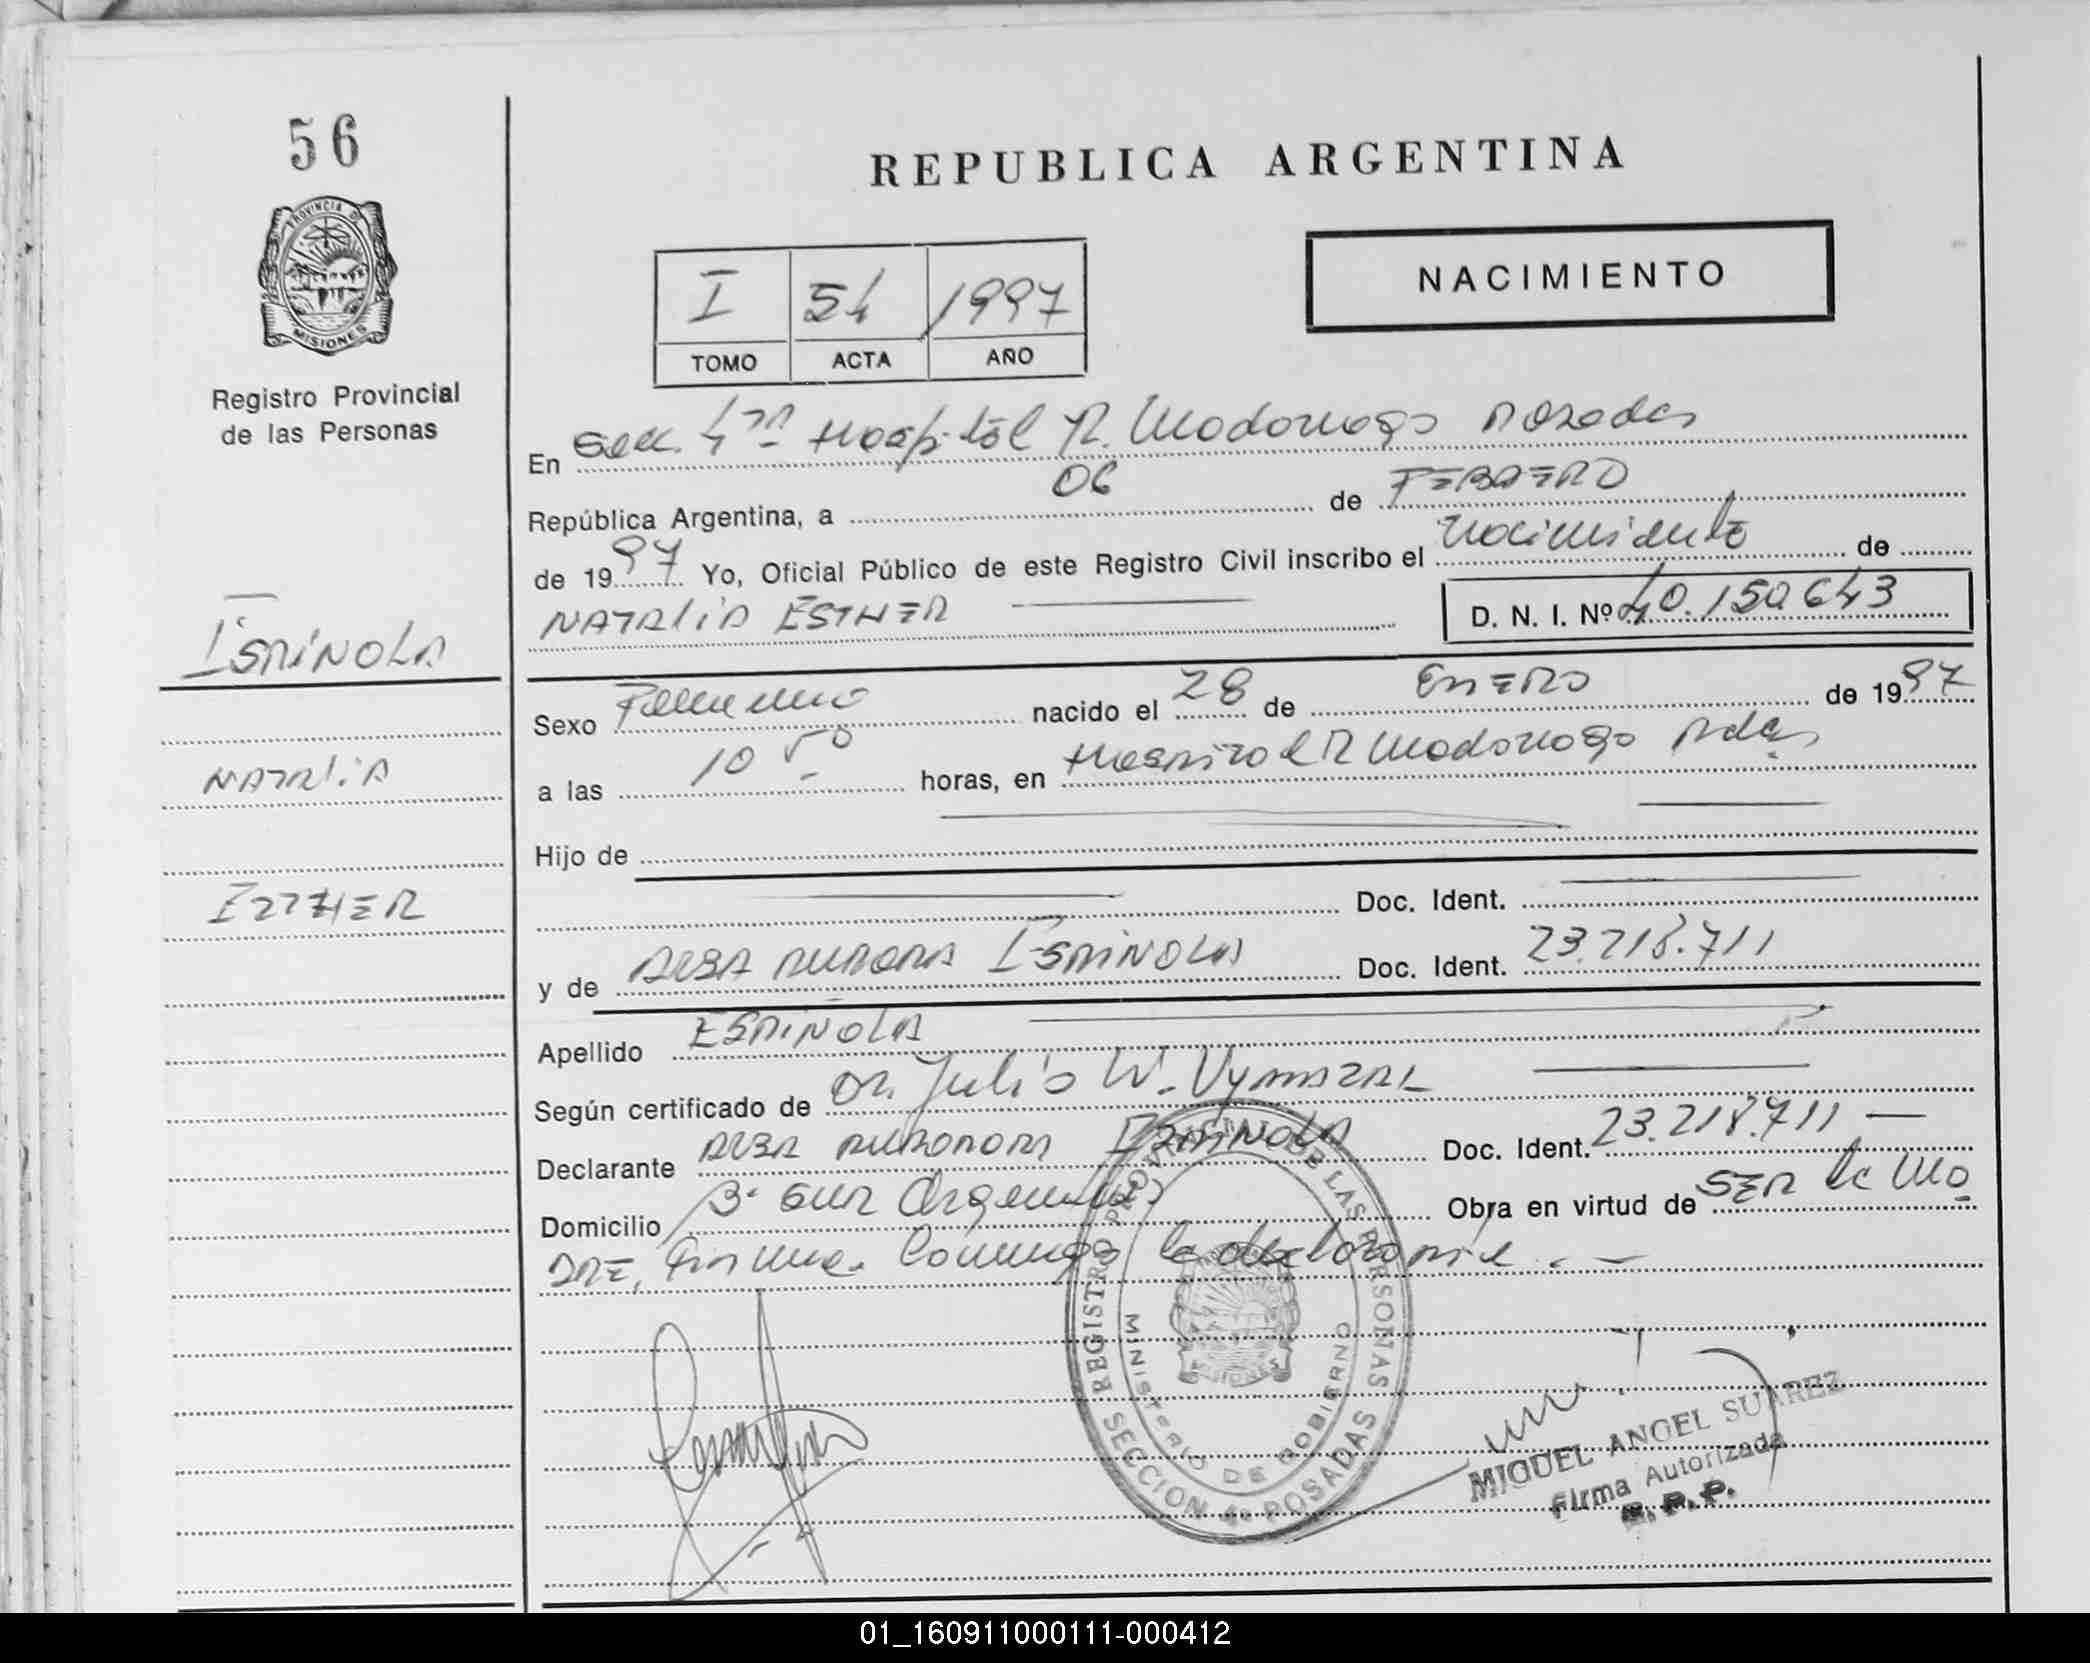 56
REPUBLICA ARGENTINA
PROVINCIA DE
MISIONES
Registro Provincial
de las Personas
NACIMIENTO
I 54 1997
TOMO ACTA AÑO
En Secc. 4ta Hospital R. Madariaga Posadas
República Argentina, a 06 de FEBRERO
de 1997 Yo, Oficial Público de este Registro Civil inscribo el Nacimiento de
NATALIA ESTHER D. N. I. Nº 40.150643
ESPINOLA
NATALIA
ESTHER
Sexo Femenino nacido el 28 de ENERO de 1997
a las 10 50 horas, en Hospital R Madariaga Pdas
Hijo de
Doc. Ident.
y de ALBA AURORA ESPINOLA Doc. Ident. 23.218.711
Apellido ESPINOLA
Según certificado de DR. Julio W. Vymazal
Declarante ALBA AURORA ESPINOLA Doc. Ident. 23.218.711
Domicilio Bº Sur Argentino Obra en virtud de SER la Ma
DRE, Firma conmigo la declarante.
REGISTRO PROVINCIAL DE LAS PERSONAS
MINISTERIO DE GOBIERNO
MISIONES
SECCION 4º POSADAS
MIGUEL ANGEL SUAREZ
Firma Autorizada
R. P. P.
01_160911000111-000412